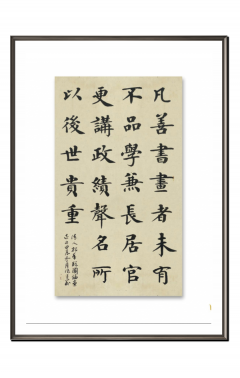 凡善書畫者未有
不品學兼長居官
更講政績聲名所
以後世貴重